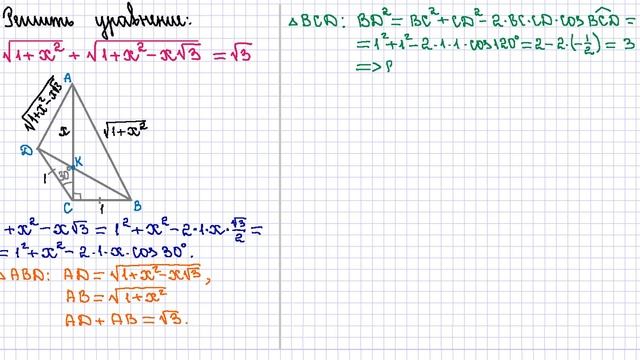 Решить уравнение:
√1+x² + √1+x²-x√3 = √3
A
√1+x²-x√3
x
√1+x²
D
K
1
30°
C
1
B
+x²-x√3 = 1²+x²-2·1·x·√3/2 =
= 1²+x²-2·1·x·cos 30°.
△ABD: AD = √1+x²-x√3,
AB = √1+x²
AD + AB = √3.
△BCD: BD² = BC² + CD² - 2·BC·CD·cos BCD =
= 1²+1²-2·1·1·cos 120° = 2-2·(-1/2) = 3
=>